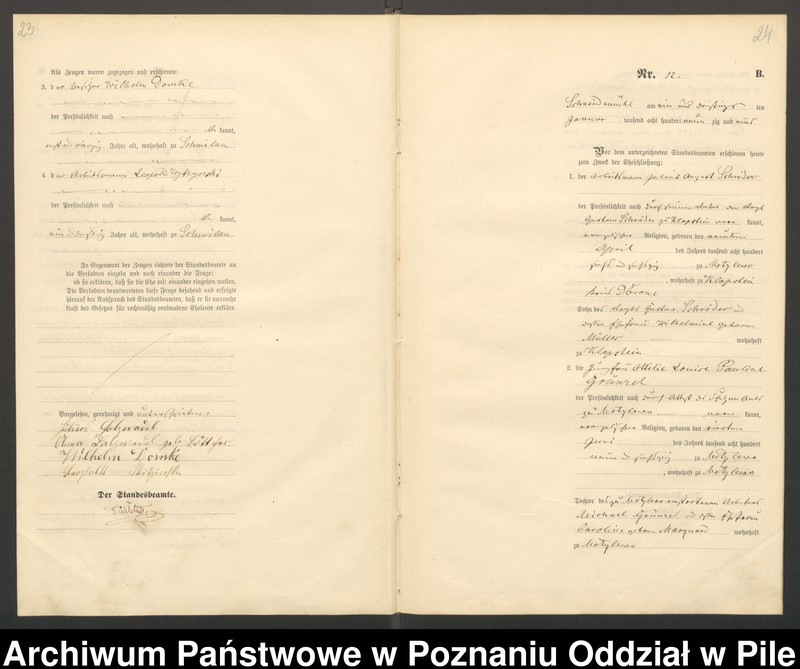 23
Als Zeugen waren zugezogen und erschienen:
3. der Besitzer Wilhelm Domke
der Persönlichkeit nach
be kannt,
Jahre alt, wohnhaft zu Schmilau
4. der Arbeitsmann Leopold
der Persönlichkeit nach
be kannt,
Jahre alt, wohnhaft zu Schmilau
In Gegenwart der Zeugen richtete der Standesbeamte an
die Verlobten einzeln und nach einander die Frage:
ob sie erklären, daß sie die Ehe mit einander eingehen wollen.
Die Verlobten beantworteten diese Frage bejahend und erfolgte
hierauf der Ausspruch des Standesbeamten, daß er sie nunmehr
kraft des Gesetzes für rechtmäßig verbundene Eheleute erkläre.
Vorgelesen, genehmigt und unterschrieben:
Julius
Anna geb. Böttcher
Wilhelm Domke
Leopold
Der Standesbeamte.
24
Nr. 12. B.
Schneidemühl am ein und dreißigsten
Januar tausend acht hundert neun zig und eins
Vor dem unterzeichneten Standesbeamten erschienen heute
zum Zweck der Eheschließung:
1. der Arbeitsmann Julius August Schröder
der Persönlichkeit nach durch seinen Vater den Voigt
Gustav Schröder zu Klapstein aner kannt,
evangelischer Religion, geboren den neunten
April des Jahres tausend acht hundert
sechs und sechszig zu Motylewo
, wohnhaft zu Klapstein
Kreis D Crone
Sohn des Voigts Gustav Schröder und
dessen Ehefrau Wilhelmine geborne
Müller wohnhaft
zu Klapstein
2. die Jungfrau Ottilie Louise Pauline
Grünzel
der Persönlichkeit nach durch Attest des Schulzen Amts
zu Motylewo aner kannt,
evangelischer Religion, geboren den
Juni des Jahres tausend acht hundert
neun und sechszig zu Motylewo
, wohnhaft zu Motylewo
Tochter des zu Motylewo verstorbenen Arbeiters
Michael Grünzel und dessen Ehefrau
Caroline geborne Marquard wohnhaft
zu Motylewo
Archiwum Państwowe w Poznaniu Oddział w Pile